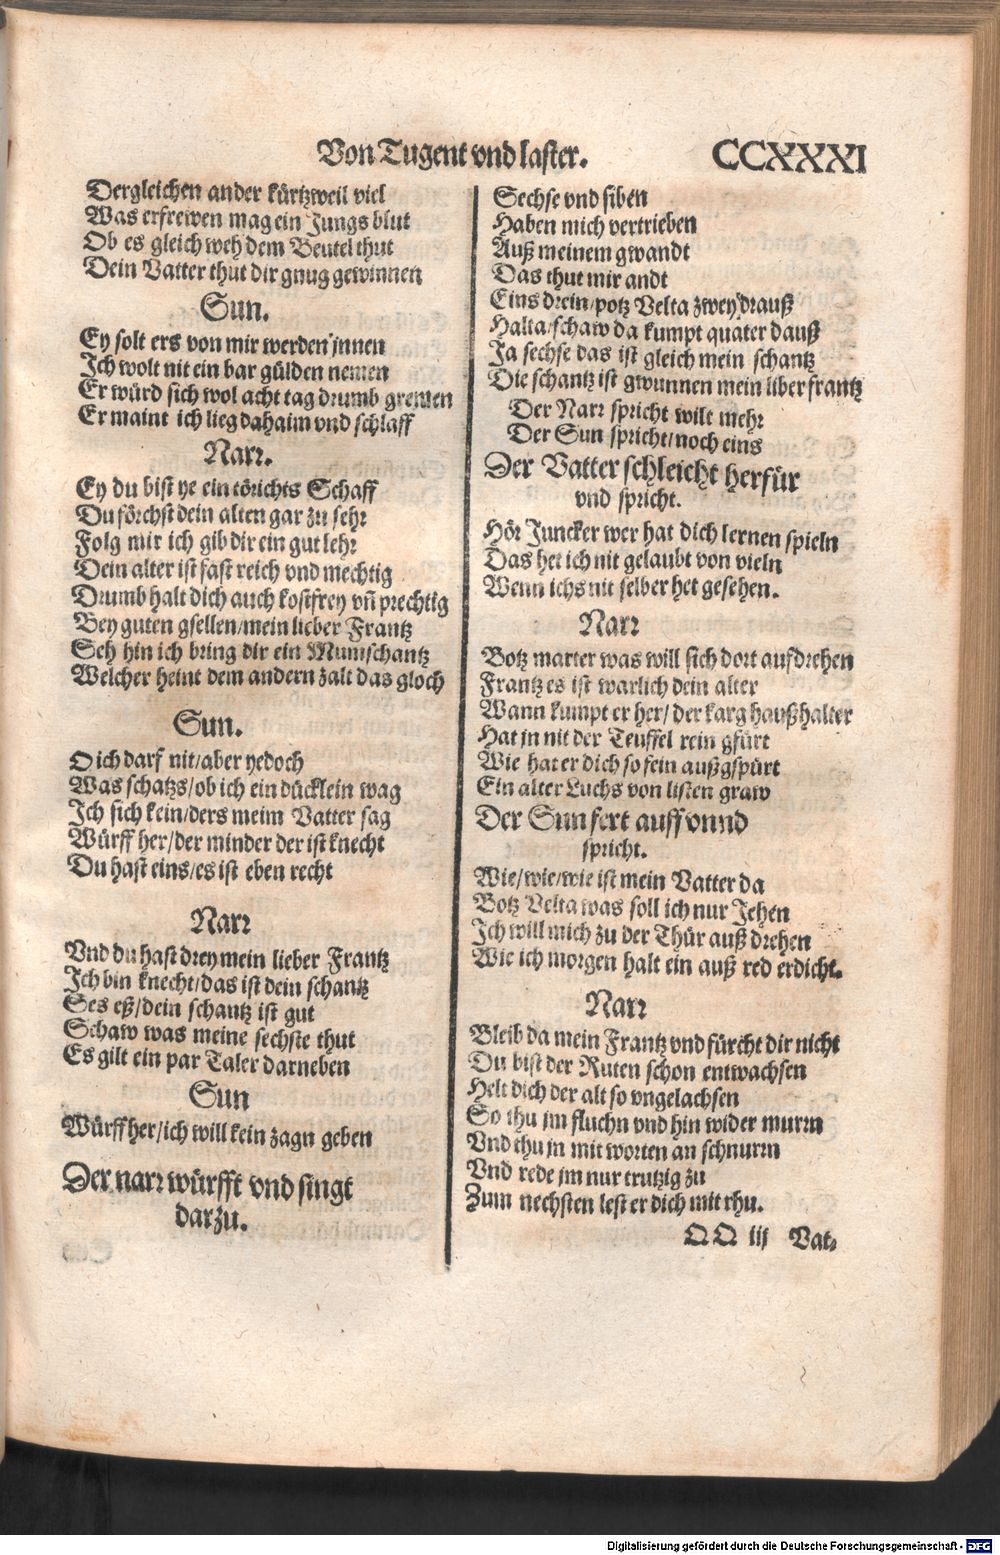 Von Tugent vnd laster. CCXXXI
Dergleichen ander kürtzweil viel
Was erfrewen mag ein Jungs blut
Ob es gleich weh dem Beutel thut
Dein Vatter thut dir gnug gewinnen
Sun.
Ey solt ers von mir werden jnnen
Ich wolt nit ein bar gülden nemen
Er würd sich wol acht tag drumb gremen
Er maint ich lieg dahaim vnd schlaff
Narr.
Ey du bist ye ein törichts Schaff
Du förchst dein alten gar zu sehr
Folg mir ich gib dir ein gut lehr
Dein alter ist fast reich vnd mechtig
Drumb halt dich auch kostfrey vñ prechtig
Bey guten gsellen/mein lieber Frantz
Seh hin ich bring dir ein Mumschantz
Welcher heint dem andern zalt das gloch
Sun.
O ich darf nit/aber yedoch
Was schatzs/ob ich ein dücklein wag
Ich sich kein/ders meim Vatter sag
Würff her/der minder der ist knecht
Du hast eins/es ist eben recht
Narr
Vnd du hast drey mein lieber Frantz
Ich bin knecht/das ist dein schantz
Ses eß/dein schantz ist gut
Schaw was meine sechste thut
Es gilt ein par Taler darneben
Sun
Würff her/ich will kein zagn geben
Der narr würfft vnd singt
darzu.
Sechse vnd siben
Haben mich vertrieben
Auß meinem gwandt
Das thut mir andt
Eins drein/potz Velta zwey drauß
Halta/schaw da kumpt quater dauß
Ja sechse das ist gleich mein schantz
Die schantz ist gwunnen mein liber frantz
Der Narr spricht wilt mehr
Der Sun spricht/noch eins
Der Vatter schleicht herfür
vnd spricht.
Hör Juncker wer hat dich lernen spieln
Das het ich nit gelaubt von vieln
Wenn ichs nit selber het gesehen.
Narr
Botz marter was will sich dort aufdrehen
Frantz es ist warlich dein alter
Wann kumpt er her/der karg haußhalter
Hat jn nit der Teuffel rein gfürt
Wie hat er dich so fein außgspürt
Ein alter Luchs von listen graw
Der Sun fert auff vnnd
spricht.
Wie/wie/wie ist mein Vatter da
Botz Velta was soll ich nur Jehen
Ich will mich zu der Thür auß drehen
Wie ich morgen halt ein auß red erdicht.
Narr
Bleib da mein Frantz vnd fürcht dir nicht
Du bist der Ruten schon entwachsen
Helt dich der alt so vngelachsen
So thu jm fluchn vnd hin wider murrn
Vnd thu jn mit worten an schnurrn
Vnd rede jm nur trutzig zu
Zum nechsten lest er dich mit rhu.
QQ iij Vat-
Digitalisierung gefördert durch die Deutsche Forschungsgemeinschaft - DFG